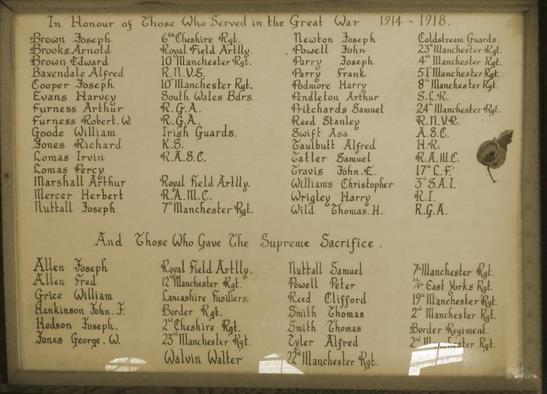 In Honour of Those Who Served in the Great War 1914 - 1918.
Brown Joseph 6th Cheshire Rgt. Newton Joseph Coldstream Guards.
Brooks Arnold Royal Field Artlly. Powell John 23rd Manchester Rgt.
Brown Edward 10th Manchester Rgt. Parry Joseph 4th Manchester Rgt.
Baxendale Alfred R.N.V.S. Parry Frank 51st Manchester Rgt.
Cooper Joseph 10th Manchester Rgt. Podmore Harry 8th Manchester Rgt.
Evans Harvey South Wales Bdrs. Pendleton Arthur S.L.R.
Furness Arthur R.G.A. Pritchards Samuel 24th Manchester Rgt.
Furness Robert. W. R.G.A. Reed Stanley R.N.V.R.
Goode William Irish Guards. Swift Asa A.S.C.
Jones Richard K.S. Taulbutt Alfred H.R.
Lomas Irvin R.A.S.C. Tatler Samuel R.A.M.C.
Lomas Percy Travis John. E. 17th L.F.
Marshall Arthur Royal Field Artlly. Williams Christopher 3rd S.A.I.
Mercer Herbert R.A.M.C. Wrigley Harry R.I.
Nuttall Joseph 7th Manchester Rgt. Wild Thomas. H. R.G.A.
And Those Who Gave The Supreme Sacrifice.
Allen Joseph Royal Field Artlly. Nuttall Samuel 7th Manchester Rgt.
Allen Fred 12th Manchester Rgt. Powell Peter East Yorks Rgt.
Grice William Lancashire Fusiliers. Reed Clifford 19th Manchester Rgt.
Hankinson John. F. Border Rgt. Smith Thomas 2nd Manchester Rgt.
Hodson Joseph. 2nd Cheshire Rgt. Smith Thomas Border Regiment.
Jones George. W. 23rd Manchester Rgt. Tyler Alfred 2nd Manchester Rgt.
Walvin Walter 22nd Manchester Rgt.